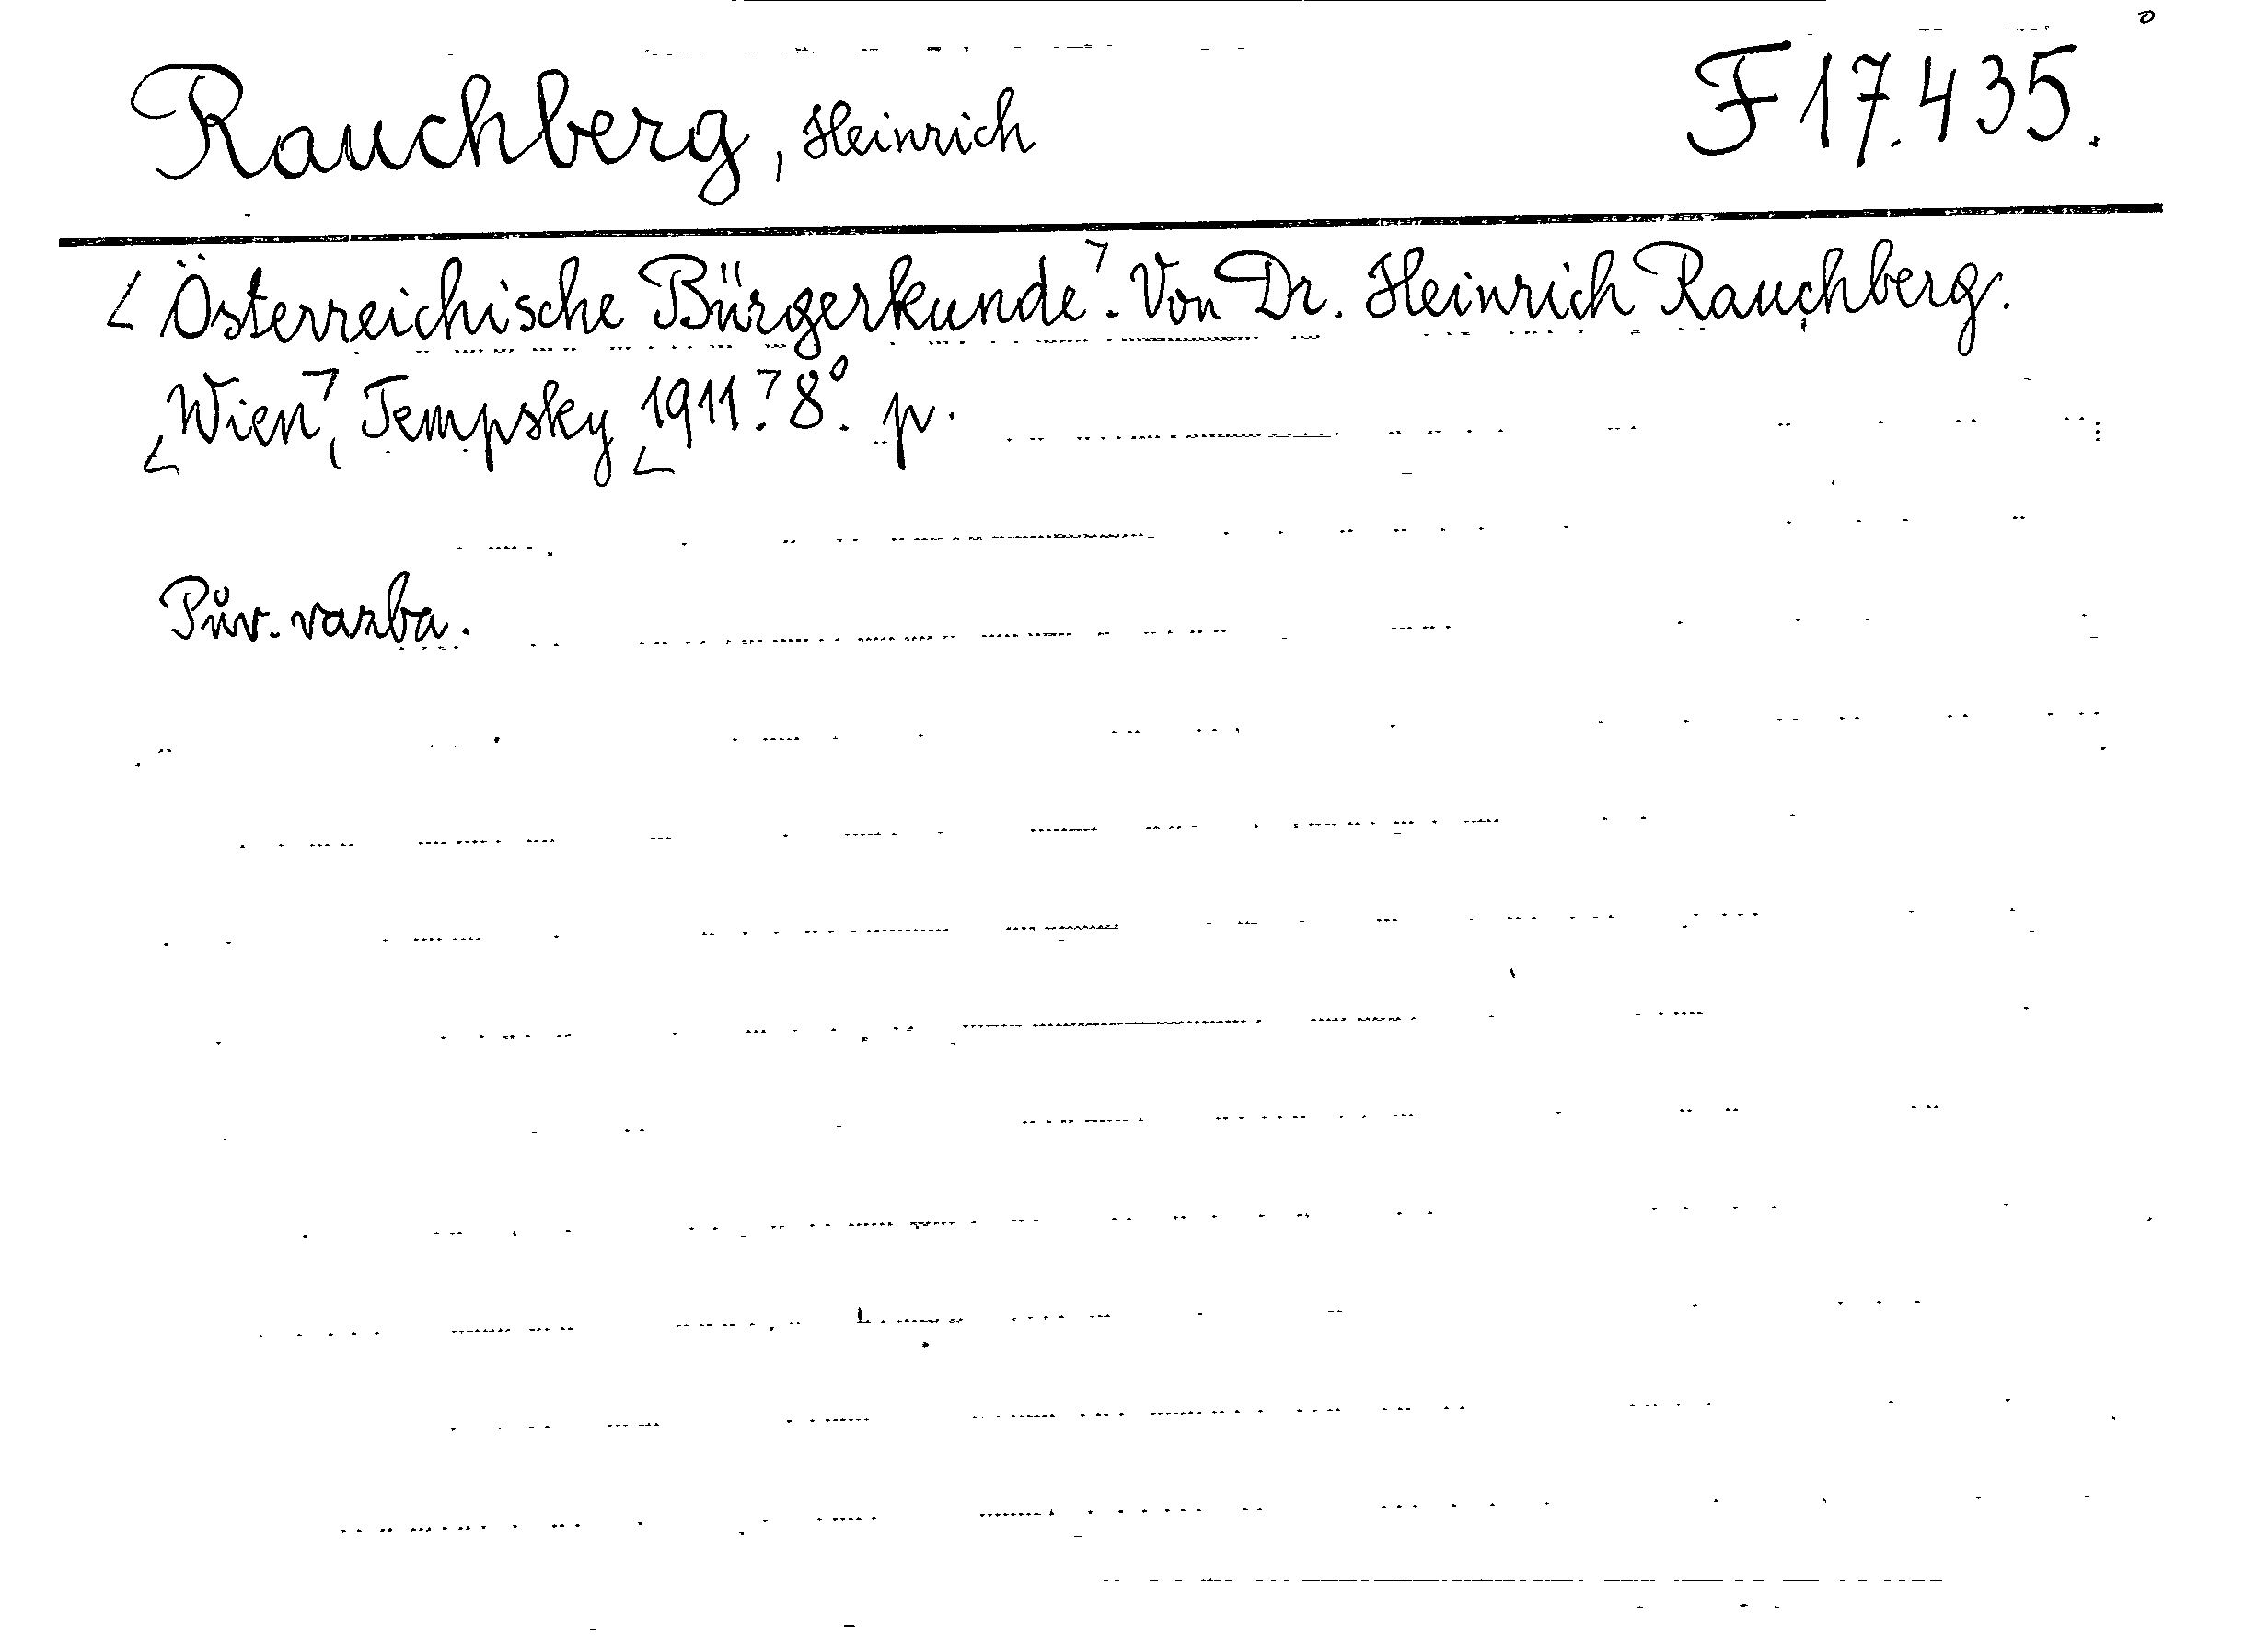 Rauchberg, Heinrich F 17.435.
<Österreichische Bürgerkunde>. Von Dr. Heinrich Rauchberg.
<Wien>, Tempsky <1911>. 8°. p.
Pův. vazba.